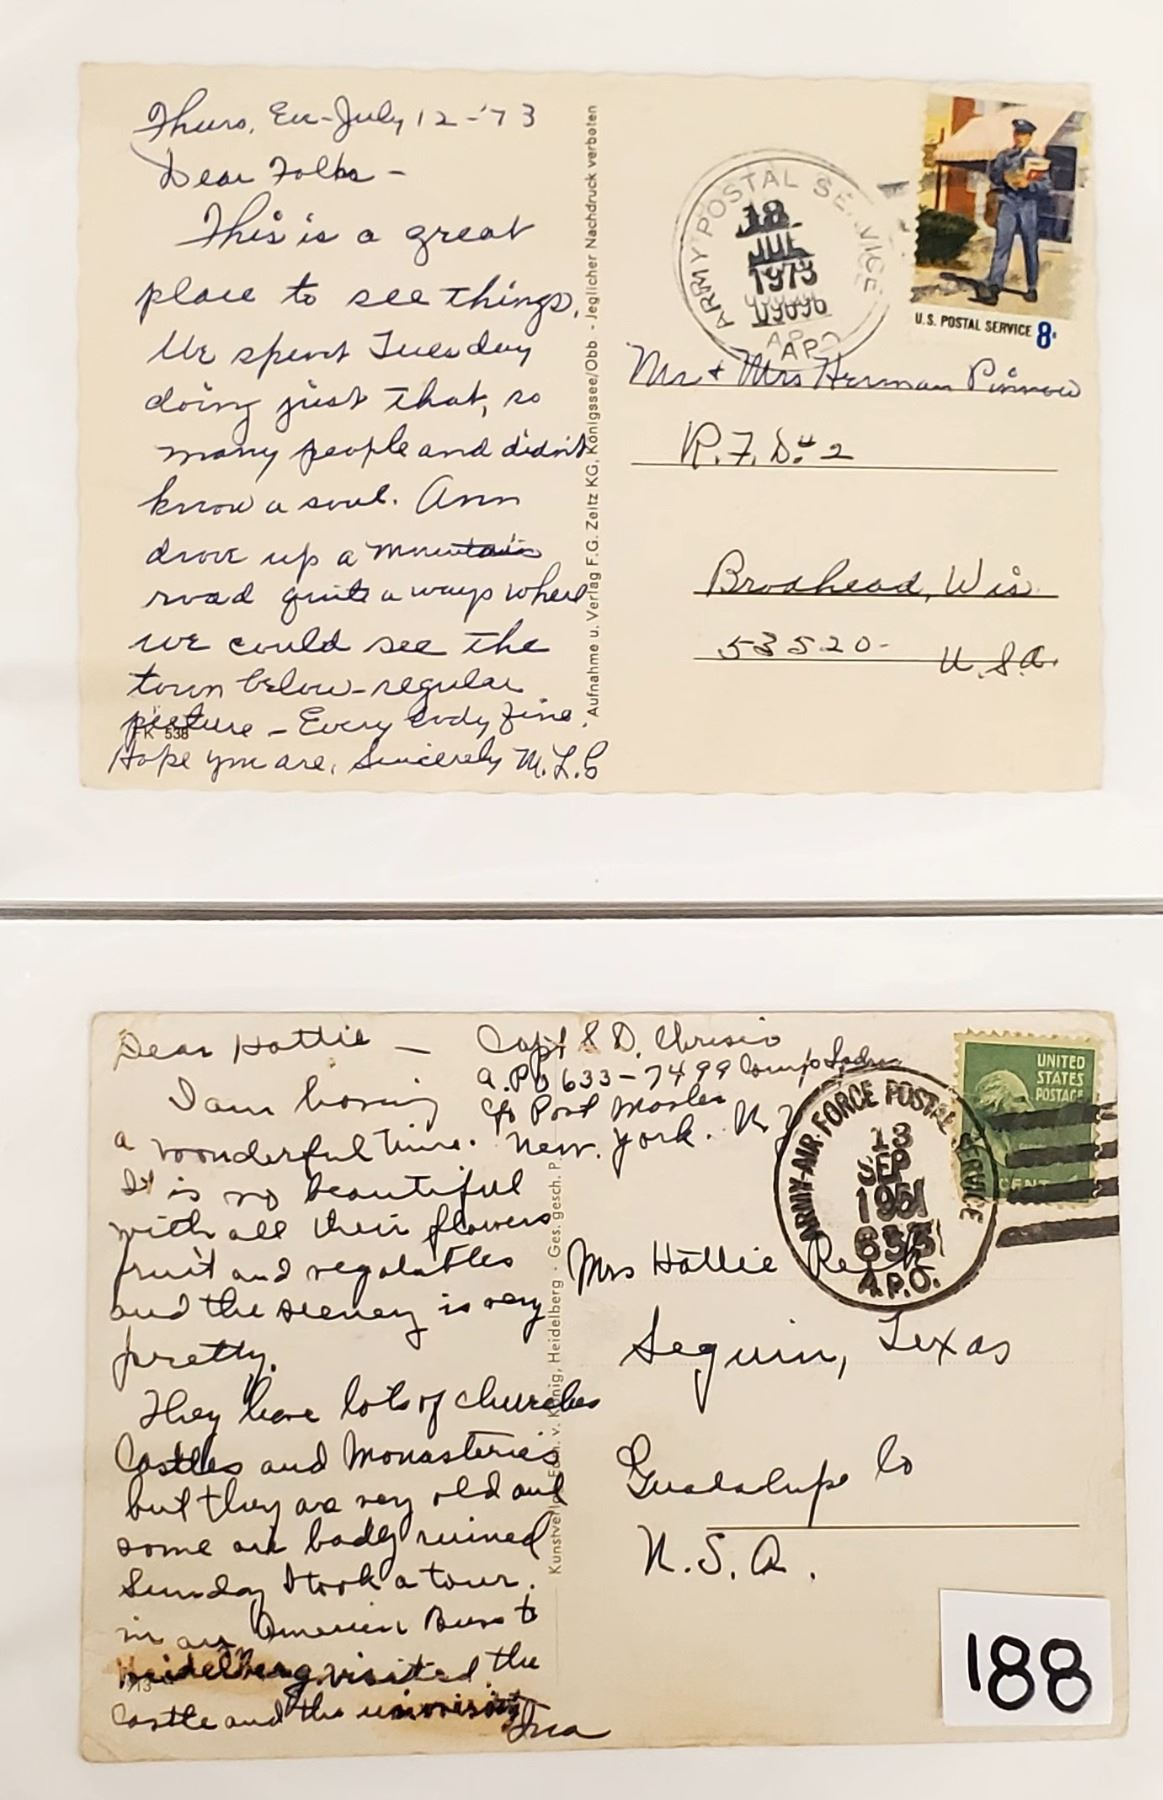 Thurs, Eve - July 12 - '73
Dear Folks -
This is a great
place to see things.
We spent Tuesday
doing just that, so
many people and didn't
know a soul. Ann
drove up a mountain
road quite a ways where
we could see the
town below - regular
picture - Every body fine.
Hope you are, Sincerely M.L.B
FK 538
Aufnahme u. Verlag F.G. Zeitz KG, Königssee/Obb - Jeglicher Nachdruck verboten
ARMY POSTAL SERVICE
18
JUL
1973
09696
APO
U.S. POSTAL SERVICE 8c
Mr & Mrs Herman Pinnow
R.F.D. # 2
Brodhead, Wis.
53520 -
U.S.A.
Dear Hattie -
I am having
a wonderful time.
It is so beautiful
with all their flowers
fruit and vegatables
and the scenery is very
pretty.
They have lots of churches
Castles and Monasteries
but they are very old and
some are badly ruined
Sunday I took a tour
in an American Buss to
Heidelberg, visited the
Castle and the university
Ina
Capt S D.
A.P.O 633 - 7499 Comp
c/o Post Master
New York. N Y
913
Kunstverlag Edm. v. König, Heidelberg · Ges. gesch. P.
ARMY-AIR FORCE POSTAL SERVICE
13
SEP
1951
633
A.P.O.
UNITED
STATES
POSTAGE
CENT
Mrs Hattie
Seguin, Texas
Guadalupe Co
U.S.A.
188